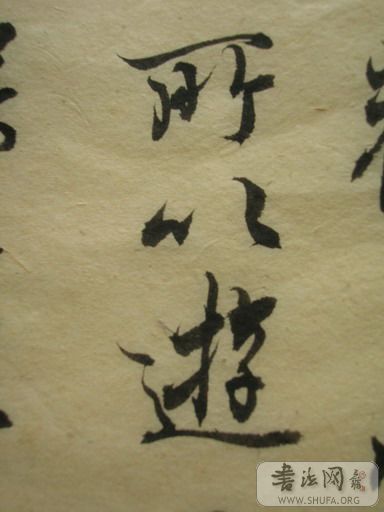 所以遊
书法网
WWW.SHUFA.ORG